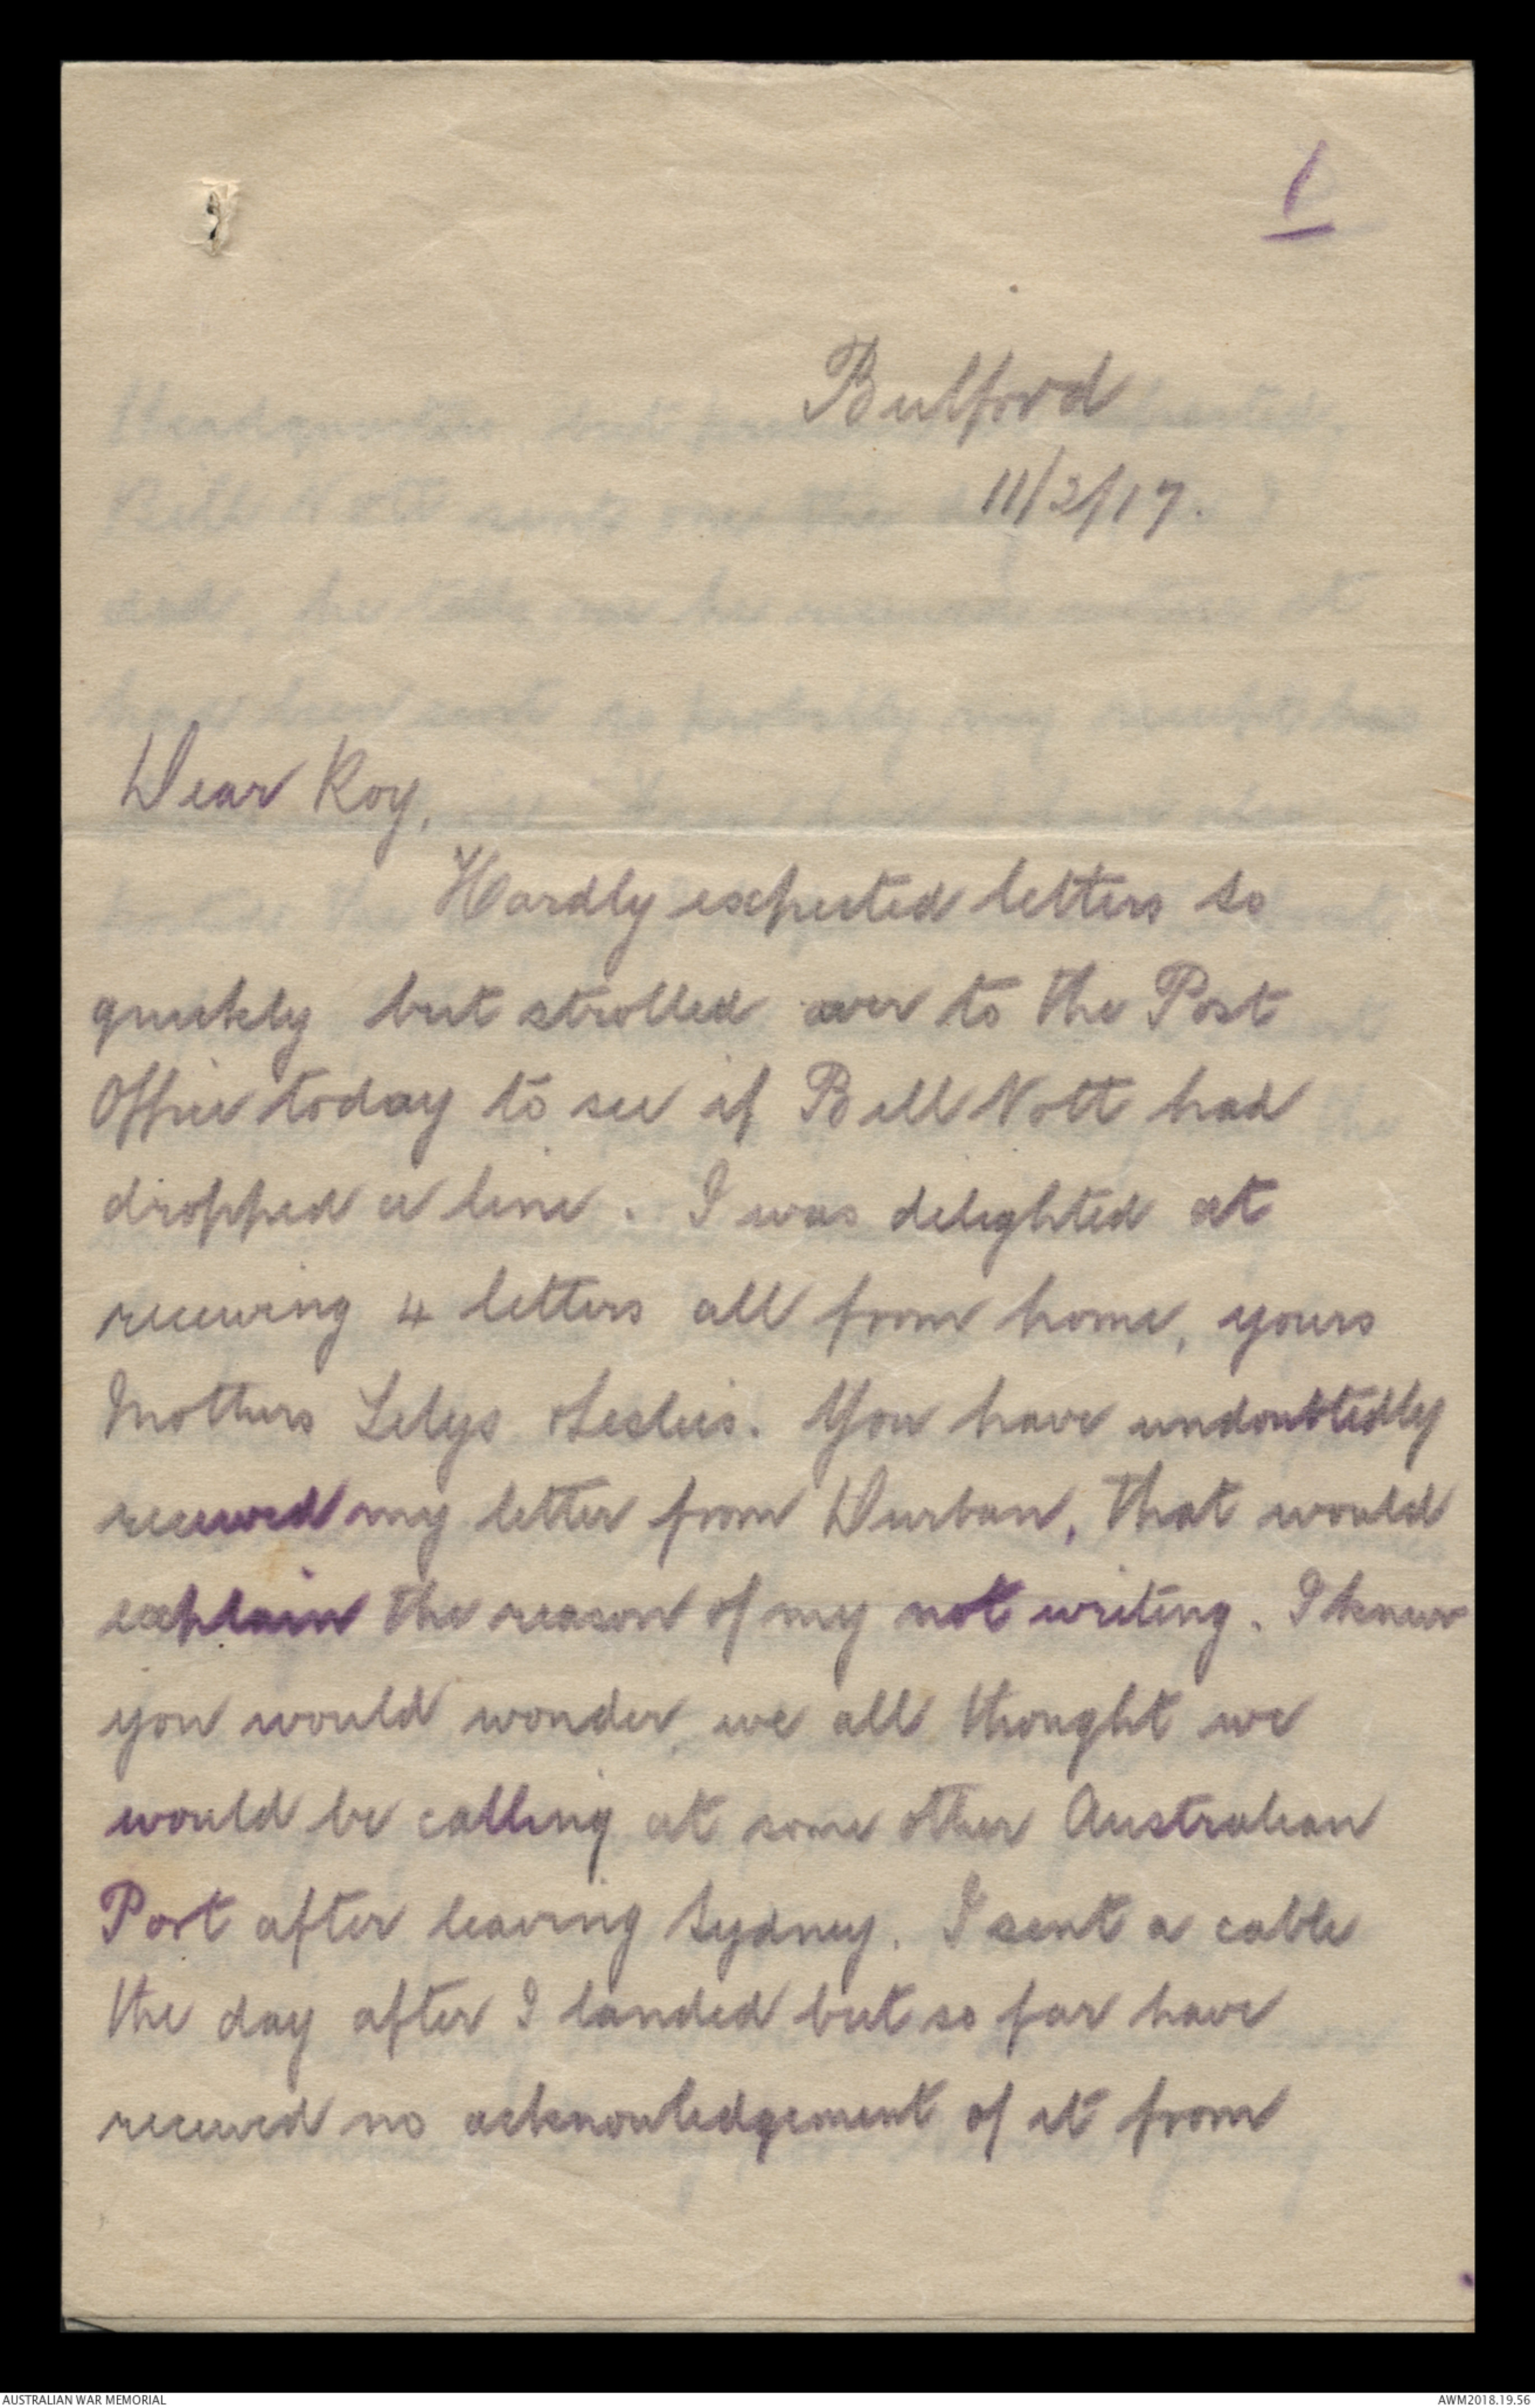 1
Bulford
11/2/17.
Dear Roy,
Hardly expected letters so
quickly but strolled over to the Post
Office today to see if Bill Nott had
dropped a line. I was delighted at
receiving 4 letters all from home, yours
Mothers Lilys & Leslies. You have undoubtedly
received my letter from Durban, that would
explain the reason of my not writing. I knew
you would wonder, we all thought we
would be calling at some other Australian
Port after leaving Sydney. I sent a cable
the day after I landed but so far have
received no acknowledgement of it from
AUSTRALIAN WAR MEMORIAL
AWM2018.19.56